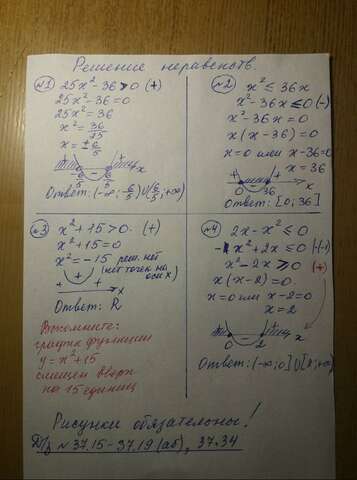 Решение неравенств.
№1 25x² - 36 > 0 (+)
25x² - 36 = 0
25x² = 36
x² = 36/25
x = ± 6/5
+ - + x
-6/5 6/5
Ответ: (-∞; -6/5) ∪ (6/5; +∞)
№2 x² ≤ 36x
x² - 36x ≤ 0 (-)
x² - 36x = 0
x(x - 36) = 0
x = 0 или x - 36 = 0
x = 36
+ - + x
0 36
Ответ: [0; 36]
№3 x² + 15 > 0. (+)
x² + 15 = 0
x² = -15 реш. нет
(нет точек на оси x)
+ + x
Ответ: R
Вспомните:
график функции
y = x² + 15
смещен вверх
на 15 единиц
№4 2x - x² ≤ 0
-x² + 2x ≤ 0 |·(-1)
x² - 2x ≥ 0 (+)
x(x - 2) = 0
x = 0 или x - 2 = 0
x = 2
0 2
Ответ: (-∞; 0] ∪ [2; +∞)
Рисунки обязательны!
Д/з № 37.15 - 37.19 (аб), 37.34